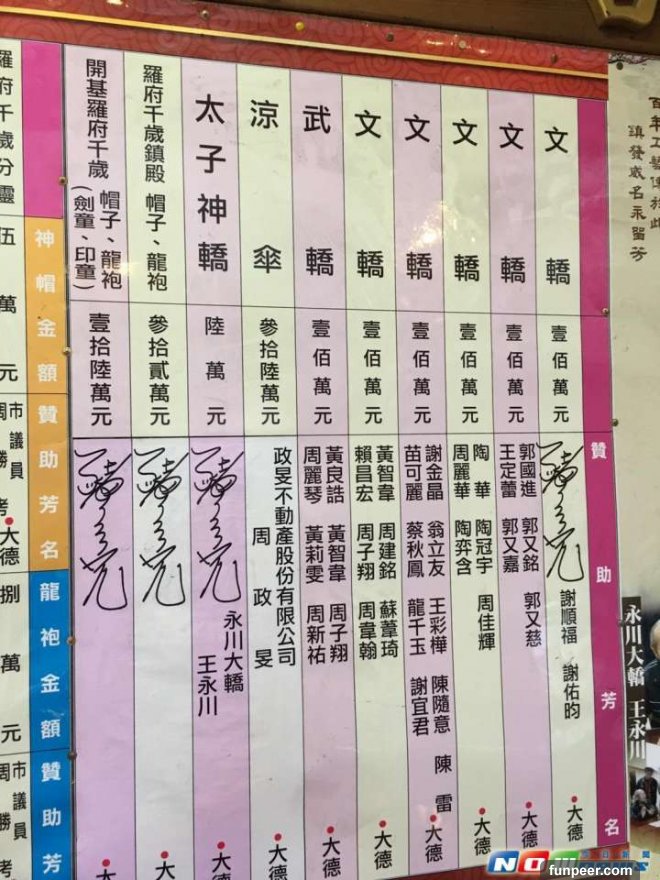 百年工藝傳於此
鎮發威名永留芳
永川大轎 王永川
贊助芳名
文轎 壹佰萬元 謝順福 謝佑昀 大德
文轎 壹佰萬元
郭國進 郭又銘 郭又慈
王定蕾 郭又嘉
大德
文轎 壹佰萬元
陶華 陶冠宇 周佳輝
周麗華 陶弈含
大德
文轎 壹佰萬元
謝金晶 翁立友 王彩樺 陳隨意 陳雷
苗可麗 蔡秋鳳 龍千玉 謝宜君
大德
文轎 壹佰萬元
黃智韋 周建銘 蘇葦琦
賴昌宏 周子翔 周韋翰
大德
武轎 壹佰萬元
黃良誥 黃智韋 周子翔
周麗琴 黃莉雯 周新祐
大德
涼傘 參拾陸萬元
政旻不動產股份有限公司
周政旻
大德
太子神轎 陸萬元
永川大轎
王永川
大德
羅府千歲鎮殿 帽子、龍袍 參拾貳萬元 大德
開基羅府千歲 帽子、龍袍
(劍童、印童)
壹拾陸萬元 大德
神帽金額 贊助芳名 龍袍金額 贊助芳
羅府千歲分靈
伍萬元
市議員
周勝考
大德
捌萬元
市議員
周勝考
NOWnews
今日新聞
funpeer.com